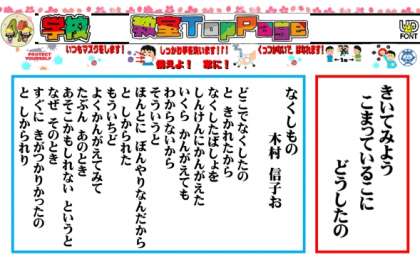 学校 教室TopPage
UD
FONT
PROTECT
YOURSELF
いつもマスクをします!
しっかり手を洗います!!!
くっつかないで、はなれます!
備えよ! 常に!
きいてみよう
こまっているこに
どうしたの
なくしもの
木村 信子お
どこでなくしたの
と きかれたから
なくしたばしょを
しんけんにかんがえた
いくら かんがえても
わからないから
そういうと
ほんとに ぼんやりなんだから
と しかられた
もういちど
よくかんがえてみて
たぶん あのとき
あそこかもしれない というと
なぜ そのとき
すぐに きがつかりかったの
と しかられり